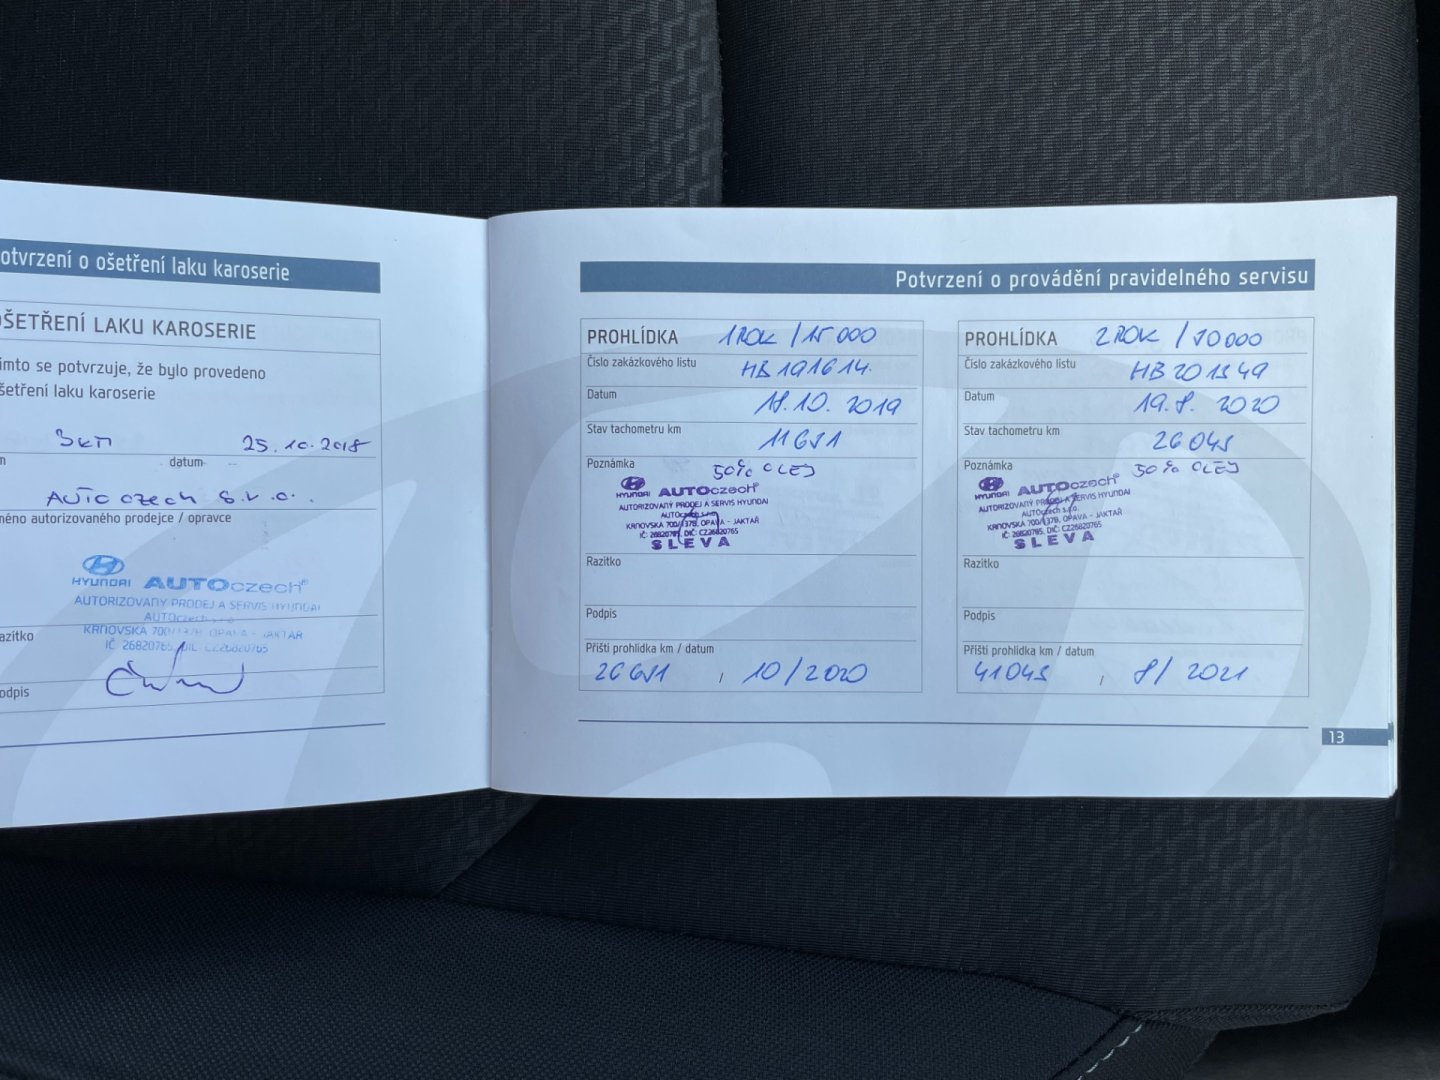 otvrzení o ošetření laku karoserie
OŠETŘENÍ LAKU KAROSERIE
ímto se potvrzuje, že bylo provedeno
šetření laku karoserie
3km 25.10.2018
m datum
AUTO CZECH S.r.o.
méno autorizovaného prodejce / opravce
HYUNDAI AUTOczech®
AUTORIZOVANÝ PRODEJ A SERVIS HYUNDAI
AUTOczech s.r.o.
KRNOVSKÁ 700/137B, OPAVA - JAKTAŘ
IČ: 26820765, DIČ: CZ26820765
azítko
odpis
Potvrzení o provádění pravidelného servisu
PROHLÍDKA 1ROK / 15 000
Číslo zakázkového listu HB191614
Datum 18.10. 2019
Stav tachometru km 11651
Poznámka 50% OLEJ
HYUNDAI AUTOczech®
AUTORIZOVANÝ PRODEJ A SERVIS HYUNDAI
AUTOczech s.r.o.
KRNOVSKÁ 700/137B, OPAVA - JAKTAŘ
IČ: 26820765, DIČ: CZ26820765
SLEVA
Razítko
Podpis
Příští prohlídka km / datum
26651 / 10/2020
PROHLÍDKA 2ROK / 30000
Číslo zakázkového listu HB201349
Datum 19.8. 2020
Stav tachometru km 26045
Poznámka 50% OLEJ
HYUNDAI AUTOczech®
AUTORIZOVANÝ PRODEJ A SERVIS HYUNDAI
AUTOczech s.r.o.
KRNOVSKÁ 700/137B, OPAVA - JAKTAŘ
IČ: 26820765, DIČ: CZ26820765
SLEVA
Razítko
Podpis
Příští prohlídka km / datum
41045 / 8/2021
13